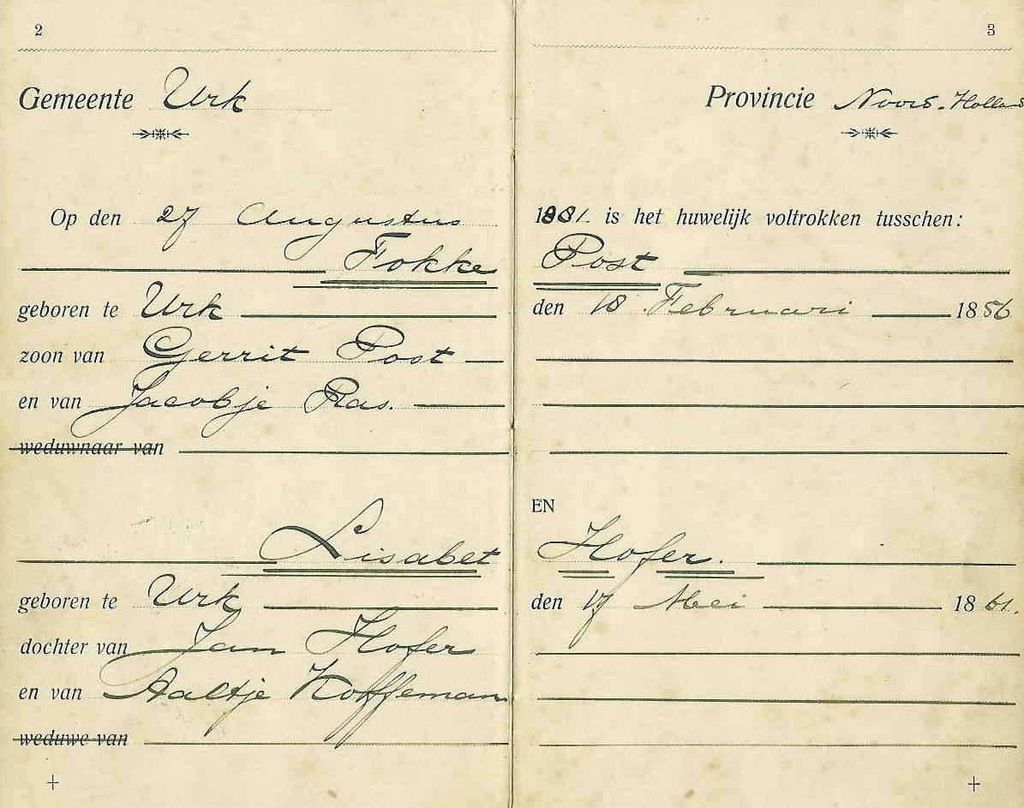 2
Gemeente Urk
Op den 27 Augustus
Fokke
geboren te Urk
zoon van Gerrit Post
en van Jacobje Ras.
weduwnaar van
Lisabet
geboren te Urk
dochter van Jan Hofer
en van Aaltje Koffeman
weduwe van
3
Provincie Noord-Holland
1881. is het huwelijk voltrokken tusschen:
Post
den 18 Februari 1856
EN
Hofer.
den 17 Mei 1861.